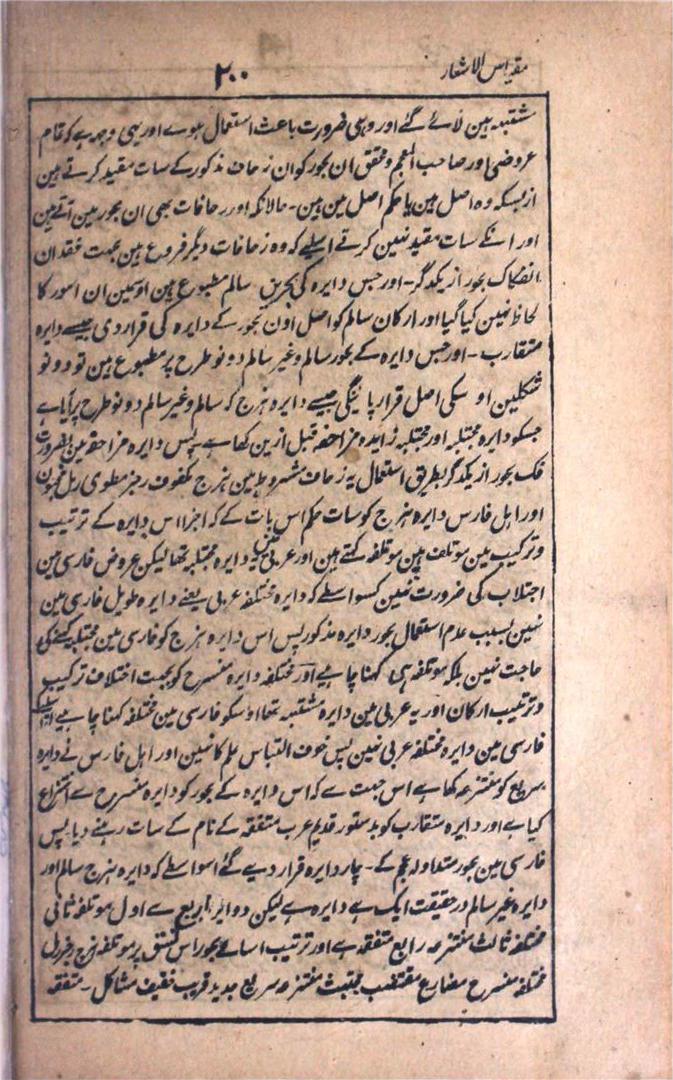 مقیاس الاشعار
۲۰۰
مشتبہ مین لائے گئے اور وہی ضرورت باعث استعمال ہوے اور یہی وجہ ہے کہ تمام
عروضی اور صاحب المعجم و محقق ان بحور کو ان زحاف مذکور کے سات مقید کرتے ہین
ازبسکہ وہ اصل ہین یا حکم اصل مین ہین۔ حالانکہ اور زحافات بھی ان بحور مین آتے ہین
اور انکے سات مقید نہین کرتے اسلیے کہ وہ زحافات دیگر فروع ہین بجہت فقدان
انفکاک بحور از یکدگر۔ اور جس دایرہ کی بحرین سالم مطبوع ہین اوسمین ان امور کا
لحاظ نہین کیا گیا اور ارکان سالم کو اصل اون بحور کے دایرہ کی قرار دی جیسے دایرہ
متقارب۔ اور جس دایرہ کے بحور سالم و غیر سالم دونو طرح پر مطبوع ہین تو دونو
شکلین اوسکی اصل قرار پائینگی جیسے دایرہ ہزج کہ سالم و غیر سالم دونو طرح پر آیا ہے
جسکو دایرہ مجتلبہ اور مجتلبہ زایدہ مزاحفہ قبل ازین کہا ہے پس دایرہ مزاحفہ مین بضرورت
فک بحور از یکدگر بطریق استعمال یہ زحاف مشروط ہین ہزج مکفوف رجز مطوی رمل مخبون
اور اہل فارس دایرہ ہزج کو سات حکم اس بات کے کہ اجزا اس دایرہ کے ترتیب
و ترکیب مین موتلف ہین موتلفہ کہتے ہین اور عربی مین یہ دایرہ مجتلبہ تھا لیکن عروض فارسی مین
اجتلاب کی ضرورت نہین کسواسلیے کہ دایرہ مختلفہ عربی یعنے دایرہ طویل فارسی مین
نہین بسبب عدم استعمال بحور دایرہ مذکور پس اس دایرہ ہزج کو فارسی مین مجتلبہ کہنے کی
حاجت نہین بلکہ موتلفہ ہی کہنا چاہیے اور مختلفہ دایرہ منسرح کو بجہت اختلاف ترکیب
و ترتیب ارکان اور یہ عربی مین دایرہ مشتبہ تھا اوسکو فارسی مین مختلفہ کہنا چاہیے اسلیے
فارسی مین دایرہ مختلفہ عربی نہین پس خوف التباس علم کا نہین اور اہل فارس نے دایرہ
سریع کو منتزعہ کہا ہے اس جہت سے کہ اس دایرہ کے بحور کو دایرہ منسرح سے انتزاع
کیا ہے اور دایرہ متقارب کو بدستور قدیم عرب متفقہ کے نام کے سات رہنے دیا پس
فارسی مین بحور متداولہ عجم کے۔ چار دایرہ قرار دیے گئے اسواسلیے کہ دایرہ ہزج سالم اور
دایرہ غیر سالم در حقیقت ایک ہے دایرہ ہے لیکن دوائر اربع سے اول موتلفہ ثانی
مختلفہ ثالث منتزعہ رابع متفقہ ہے اور ترتیب اسمائے بحور اس نسق پر موتلفہ ہزج رجز رمل
مختلفہ منسرح مضارع مقتضب مجتث منتزعہ سریع جدید قریب خفیف مشاکل۔ متفقہ